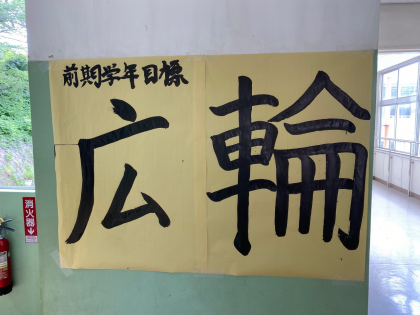 前期学年目標
広輪
消火器